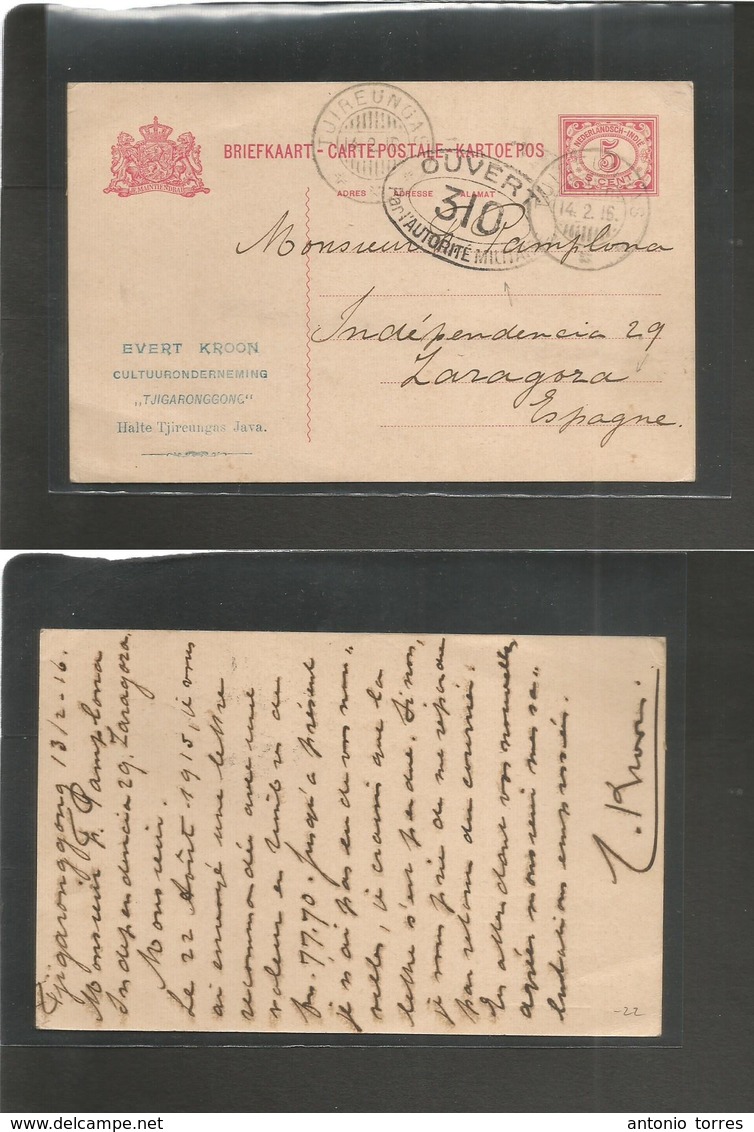 BRIEFKAART - CARTE POSTALE - KARTOEPOS
ADRES ADRESSE ALAMAT
JE MAINTIENDRAI
NEDERLANDSCH-INDIË
5
5 CENT
TJIREUNGAS
14.2.16
OUVERT
310
Par l'AUTORITÉ MILITAIRE
14. 2. 16.
Monsieur Pamplona
Indépendencia 29
Zaragoza
Espagne.
EVERT KROON
CULTUURONDERNEMING
„TJIGARONGGONG"
Halte Tjireungas Java.
Tjigaronggong 13/2-16.
Monsieur Pamplona
Independencia 29. Zaragoza.
Monsieur.
Le 22 Août 1915, je vous
ai envoyé une lettre
recommandée avec une
valeur en timbres de
frs. 77.70. Jusqu'à présent
je n'ai pas eu de vos nou-
velles, je crains que la
lettre s'est perdue. Si non,
je vous prie de me répondre
par retour du courrier.
En attendant vos nouvelles
agréez monsieur mes sa-
lutations empressées.
E. Kroon.
-22
antonio torres